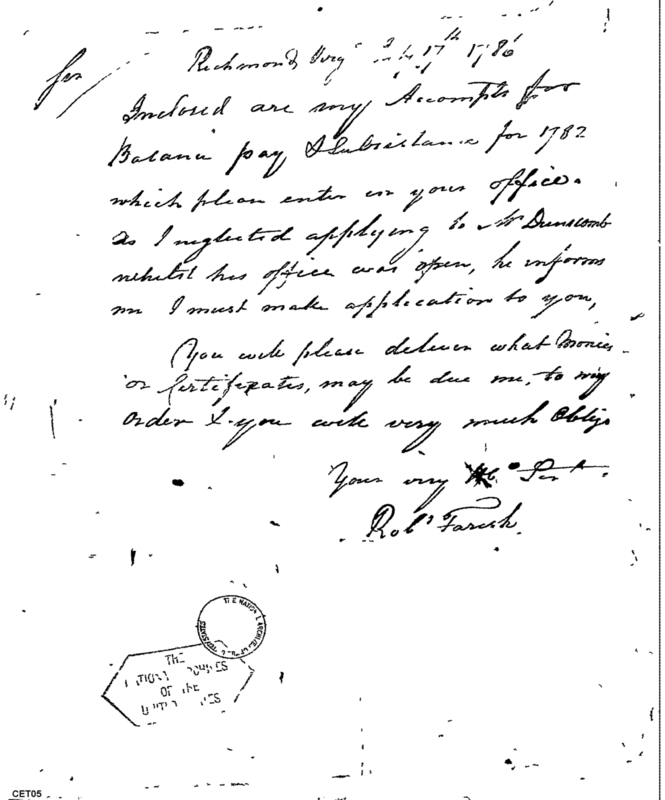 Richmond Virgª July 17th 1786
Sir
Inclosed are my Accompts for
Balance pay & Subsistance for 1782
which please enter in your office.
As I neglected applying to Mr Dunscomb
whilst his office was open, he informs
me I must make application to you,
You will please deliver what Monies
or Certificates, may be due me, to my
order & you will very much Oblige
Your very Hble Servt.
Robt Farish
THE NATIONAL ARCHIVES
THE
OF THE
CET05